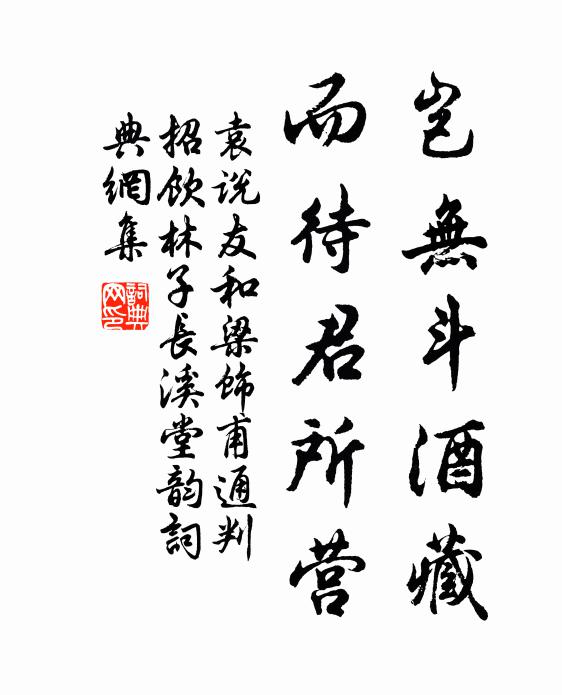 岂無斗酒藏
而待君所营
袁说友和梁饰甫通判
招飲林子長溪堂韵詞
典網集
詞典网印